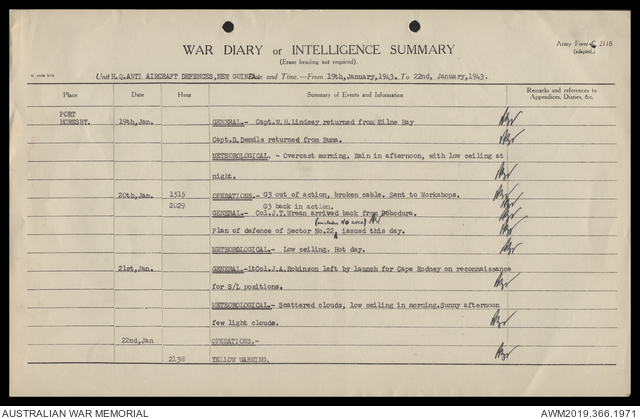 Army Form C 2118
(adapted.)
WAR DIARY or INTELLIGENCE SUMMARY
(Erase heading not required).
Unit H.Q. ANTI AIRCRAFT DEFENCES, NEW GUINEA Date and Time.—From 19th, January, 1943. To 22nd, January, 1943.
Place Date Hour Summary of Events and Information Remarks and references to Appendices, Diaries, &c.
PORT
MORESBY. 19th, Jan. GENERAL- Capt. W.H. Lindsey returned from Milne Bay
Capt. D. Demile returned from Buna.
METEOROLOGICAL. - Overcast morning. Rain in afternoon, with low ceiling at
night.
20th, Jan. 1515 OPERATIONS.- G3 out of action, broken cable. Sent to Workshops.
2029 G3 back in action.
GENERAL- Col. J.T. Wrean arrived back from Dobodura.
Plan of defence of Sector No. 22 issued this day.
METEOROLOGICAL- Low ceiling. Hot day.
21st, Jan. GENERAL-LtCol. J.A. Robinson left by launch for Cape Rodney on reconnaissance
for S/L positions.
METEOROLOGICAL.- Scattered clouds, low ceiling in morning. Sunny afternoon
few light clouds.
22nd, Jan OPERATIONS.-
2138 YELLOW WARNING.
AUSTRALIAN WAR MEMORIAL AWM2019.366.1971